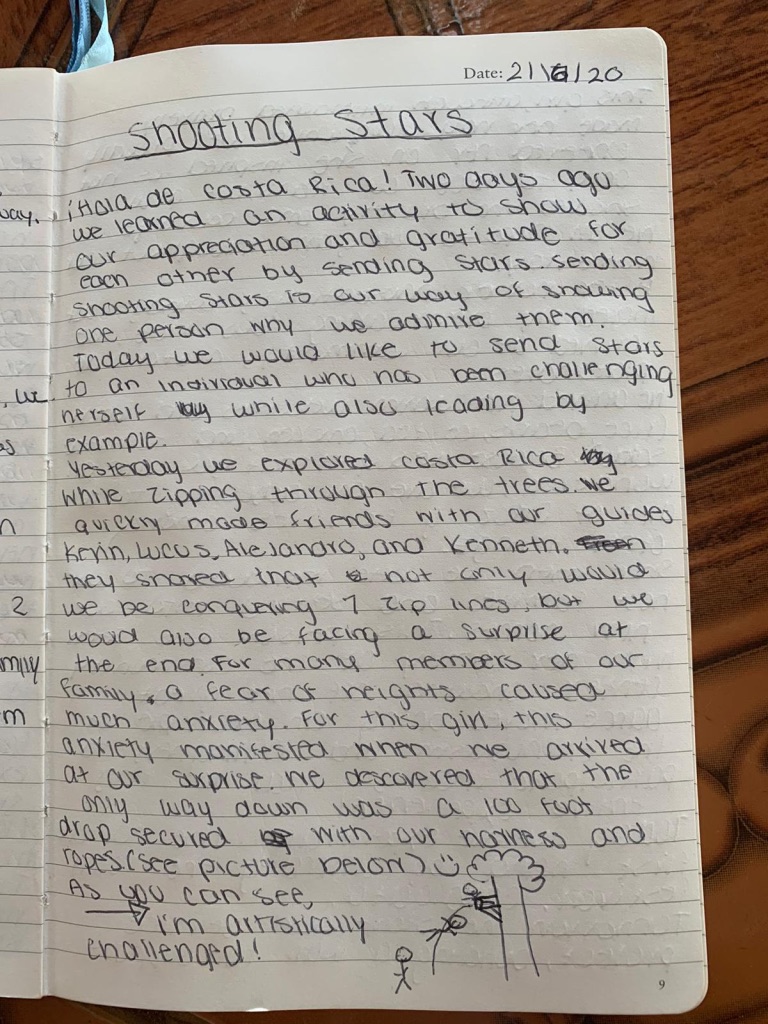 Date: 21/6/20
Shooting Stars
way.
¡Hola de Costa Rica! Two days ago
we learned an activity to show
our appreciation and gratitude for
each other by sending stars. Sending
shooting stars is our way of showing
one person why we admire them.
Today we would like to send stars
, we
to an individual who has been challenging
herself while also leading by
as
example.
Yesterday we explored Costa Rica
while zipping through the trees. We
n
quickly made friends with our guides
Kevin, Lucus, Alejandro, and Kenneth.
they shared that not only would
2
we be conquering 7 zip lines, but we
woud also be facing a surprise at
mily
the end. For many members of our
family, a fear of heights caused
m
much anxiety. For this girl, this
anxiety manifested when we arrived
at our surprise. We descovered that the
only way down was a 100 foot
drop secured with our harness and
ropes. (see picture below) :)
As you can see,
I'm artistically
challenged!
9